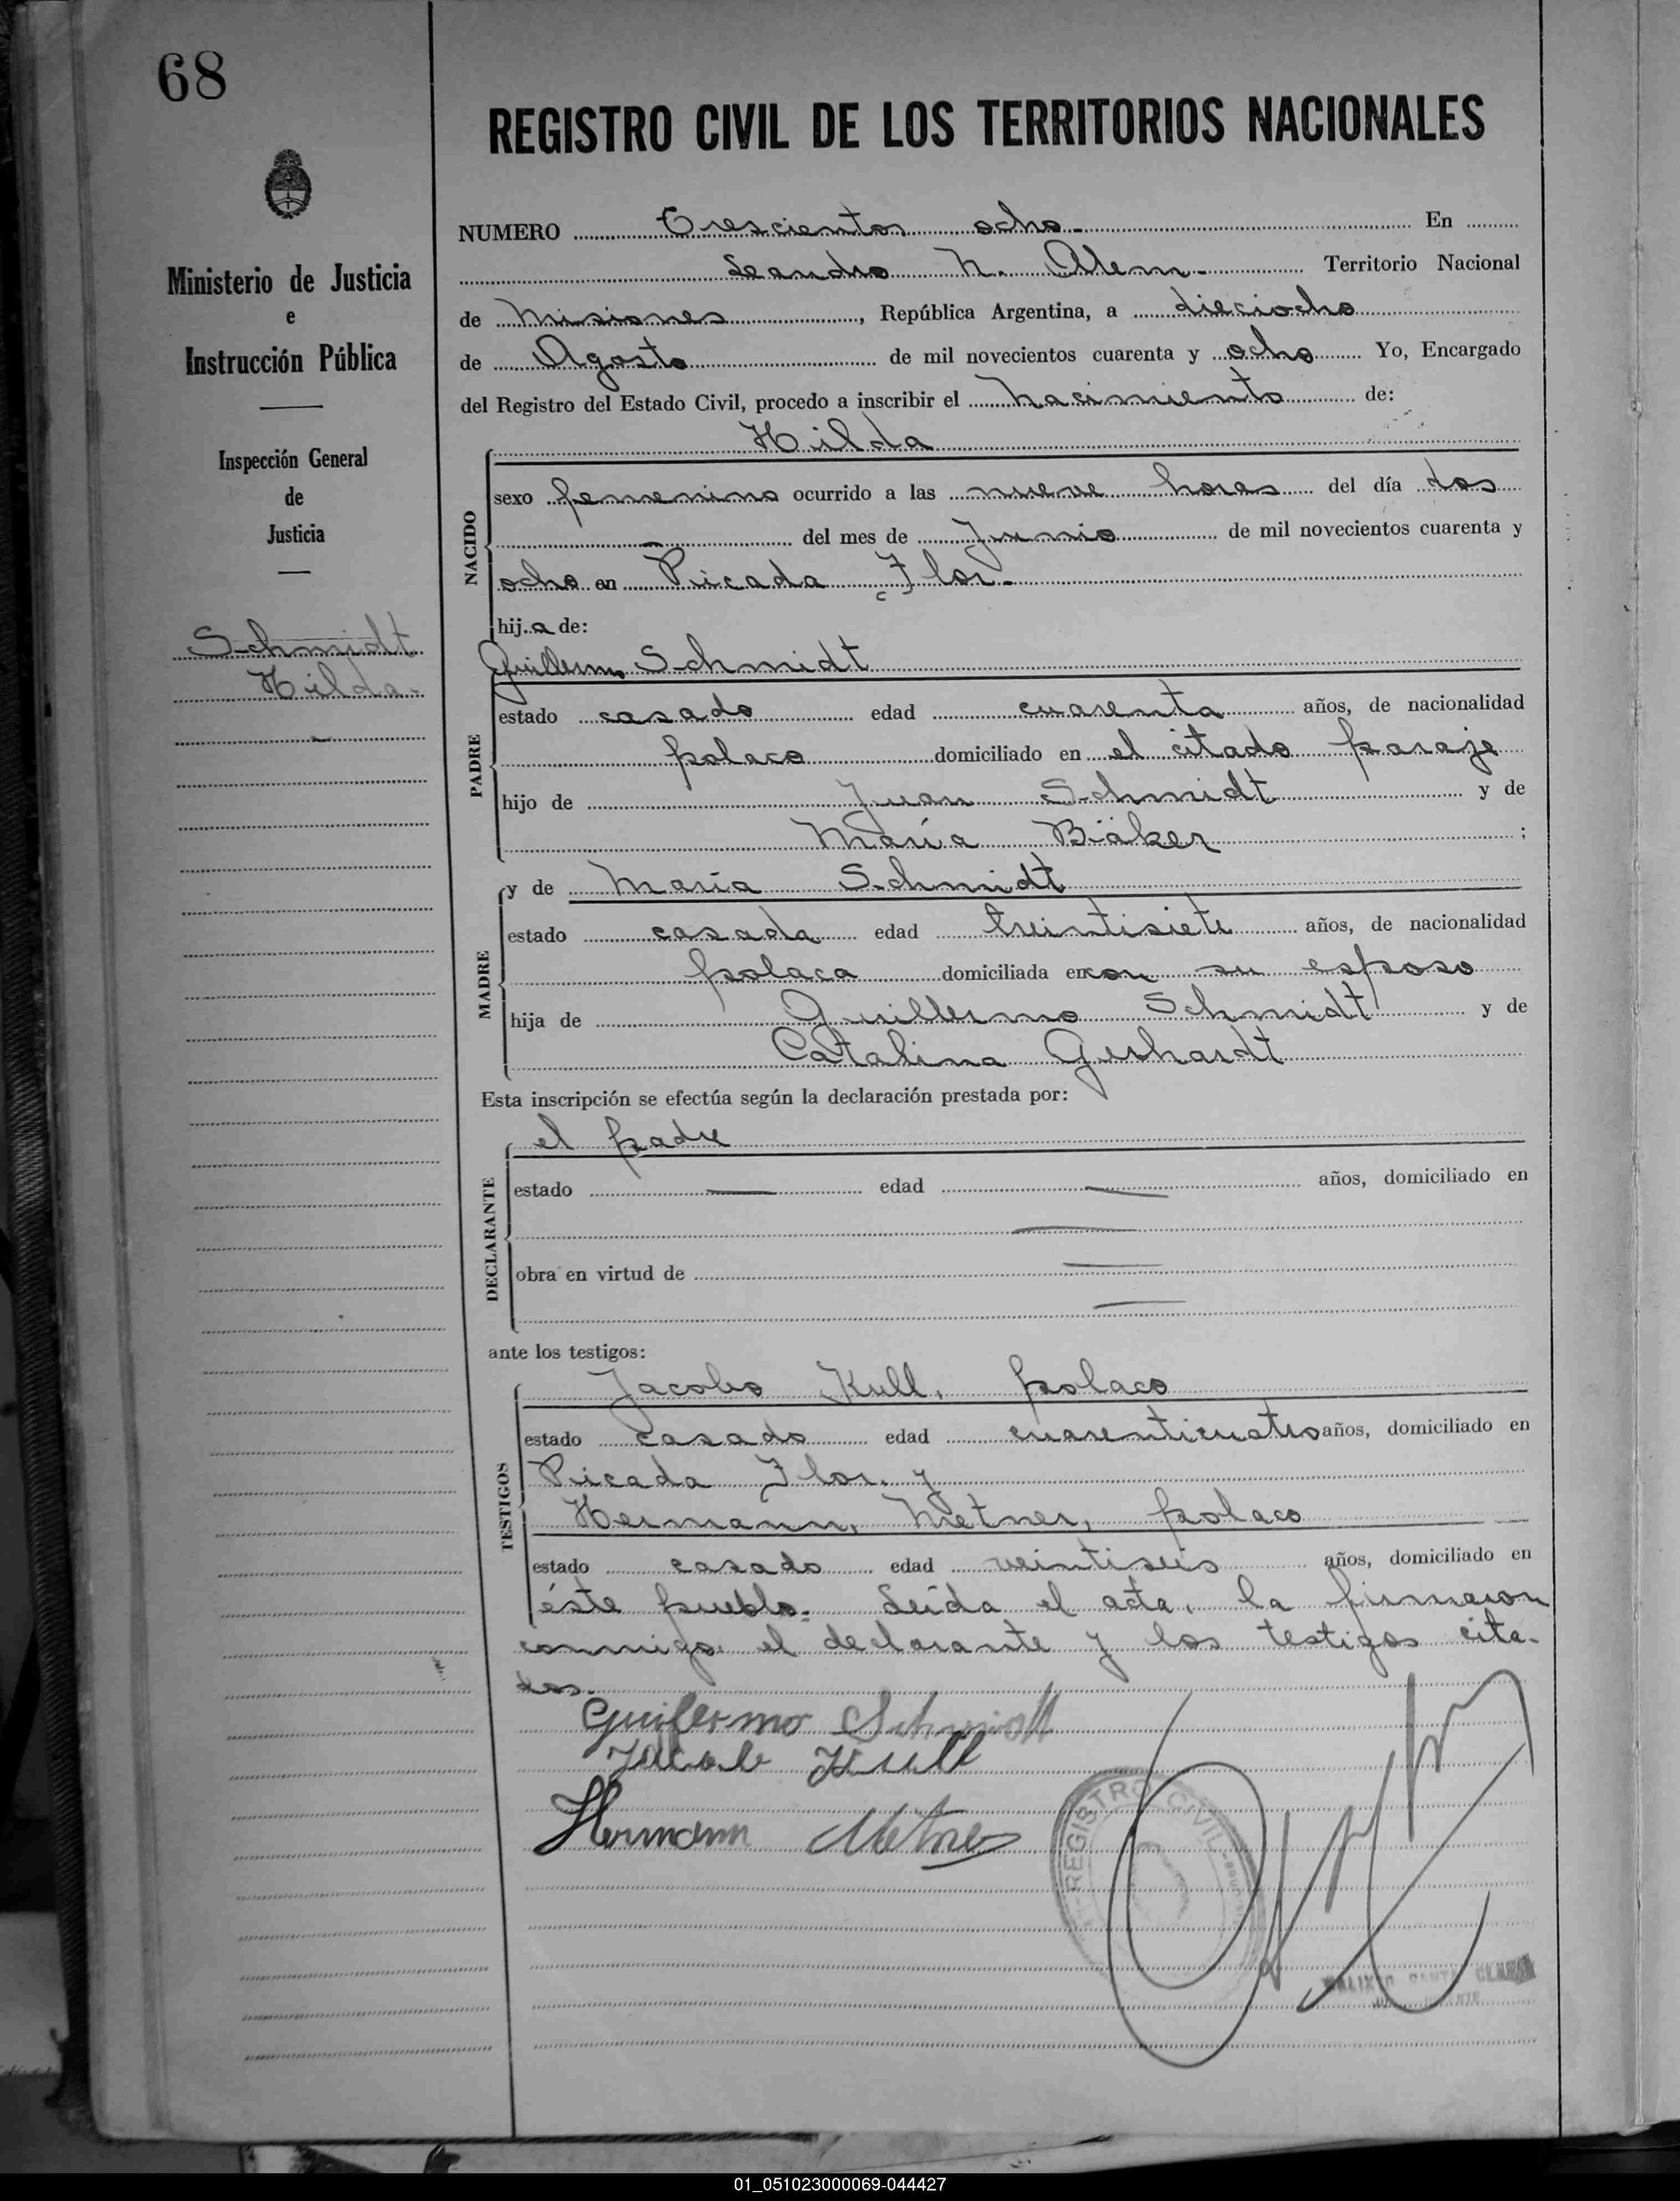 68
REGISTRO CIVIL DE LOS TERRITORIOS NACIONALES
Ministerio de Justicia
e
Instrucción Pública
Inspección General
de
Justicia
Schmidt
Hilda.
NUMERO Trescientos ocho. En
Leandro N. Alem. Territorio Nacional
de Misiones, República Argentina, a dieciocho
de Agosto de mil novecientos cuarenta y ocho Yo, Encargado
del Registro del Estado Civil, procedo a inscribir el nacimiento de:
Hilda
NACIDO
sexo femenino ocurrido a las nueve horas del día dos
del mes de Junio de mil novecientos cuarenta y
ocho en Picada Flor.
hija de:
Guillermo Schmidt
PADRE
estado casado edad cuarenta años, de nacionalidad
polaco domiciliado en el citado paraje
hijo de Juan Schmidt y de
María Bäker ;
MADRE
y de María Schmidt
estado casada edad treintisiete años, de nacionalidad
polaca domiciliada en con su esposo
hija de Guillermo Schmidt y de
Catalina Gerhardt
Esta inscripción se efectúa según la declaración prestada por:
DECLARANTE
el padre
estado — edad — años, domiciliado en
obra en virtud de
ante los testigos:
TESTIGOS
Jacobo Kull, polaco
estado casado edad cuarenticuatro años, domiciliado en
Picada Flor. y
Hermann, Metner, polaco
estado casado edad veintiseis años, domiciliado en
éste pueblo. Leída el acta, la firmaron
conmigo el declarante y los testigos cita-
dos.
Guillermo Schmidt
Jacob Kull
Hermann Metner
REGISTRO CIVIL
01_051023000069-044427